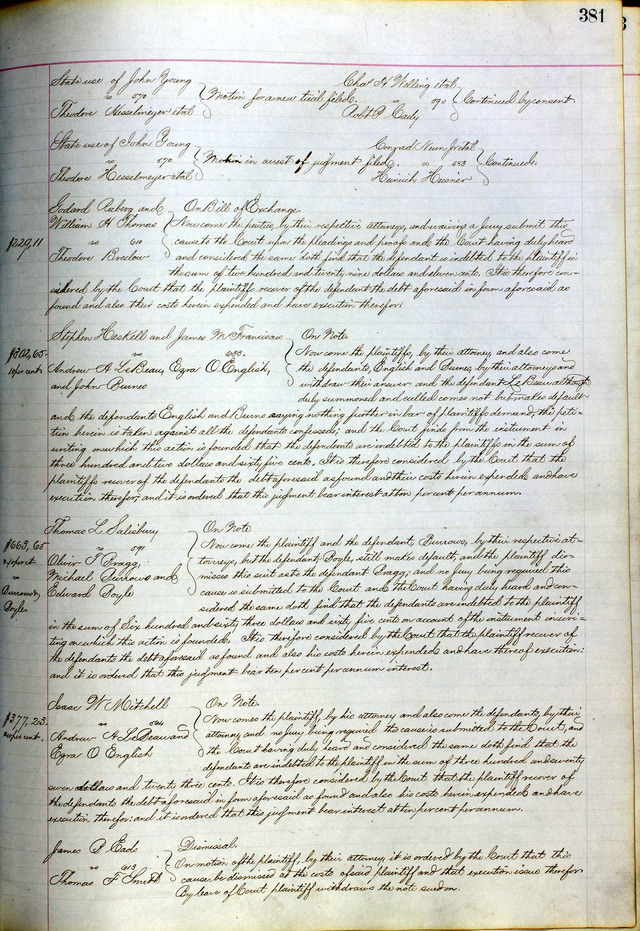 381
State use of John Young
vs 070 Motion for a new trial filed.
Theodore Hesselmeyer et al
Chas H Welling et al
090 Continued by consent.
Robt P Cady
State use of John Young
vs 070 Motion in arrest of judgment filed.
Theodore Hesselmeyer et al
Conrad et al
vs 543 Continued.
Heinrich
Godard Raberg and On Bill of Exchange.
William H Thomas Now come the parties, by their respective attorneys, and waiving a Jury submit this
vs 610 cause to the Court upon the pleadings and proofs and the Court having duly heard
$229,11
Theodore Breslow and considered the same doth find that the defendant is indebted to the plaintiff in
the sum of two hundred and twenty nine dollars and eleven cents. It is therefore con-
sidered by the Court that the plaintiff recover of the defendant the debt aforesaid in form aforesaid as
found and also their costs herein expended and have execution therefor.
Stephen Haskell and James M Franciscus On Note
vs 680. Now come the plaintiffs, by their attorney and also come
$302,65
10 per cent
Andrew A LeBeau, Ezra O English, the defendants English and Burns, by their attorneys and
and John Burns withdraw their answer and the defendant LeBeau although
duly summoned and called comes not but makes default
and the defendants English and Burns saying nothing further in bar of plaintiffs demand, the peti-
tion herein is taken against all the defendants confessed; and the Court finds from the instrument in
writing on which this action is founded that the defendants are indebted to the plaintiffs in the sum of
three hundred and two dollars and sixty five cents. It is therefore considered by the Court that the
plaintiffs recover of the defendants the debt aforesaid as found and their costs herein expended and have
execution therefor; and it is ordered that this judgment bear interest at ten per cent per annum.
Thomas L Salisbury On Note
vs 591 Now come the plaintiff and the defendant, Burrows, by their respective at-
$663,65
vs
Burrows &
Doyle.
Oliver T Bragg, torneys, but the defendant, Doyle, still makes default, and the plaintiff dis-
Michael Burrows and misses this suit as to the defendant Bragg, and no jury being required this
Edward Doyle cause is submitted to the Court and the Court having duly heard and con-
sidered the same doth find that the defendants are indebted to the plaintiff
in the sum of Six hundred and sixty three dollars and sixty five cents on account of the instrument in wri-
ting on which this action is founded. It is therefore considered by the Court that the plaintiff recover of
the defendants the debt aforesaid as found and also his costs herein expended and have thereof execution:
and it is ordered that this judgment bear ten per cent per annum interest.
Isaac W Mitchell On Note
vs Now comes the plaintiff, by his attorney and also come the defendants by their
$377,23
10 per cent.
Andrew A LeBeau and attorney and no Jury being required the cause is submitted to the Court, and
Ezra O English the Court having duly heard and considered the same doth find that the
defendants are indebted to the plaintiff in the sum of three hundred and seventy
seven dollars and twenty three cents. It is therefore considered by the Court that the plaintiff recover of
the defendants the debt aforesaid in form aforesaid as found and also his costs herein expended and have
execution therefor; and it is ordered that this judgment bear interest at ten per cent per annum.
James B Eads Dismissal.
vs 613 On motion of the plaintiff, by their attorney, it is ordered by the Court that this
Thomas F Smith cause be dismissed at the costs of said plaintiff and that execution issue therefor
By leave of Court plaintiff withdraws the note sued on.